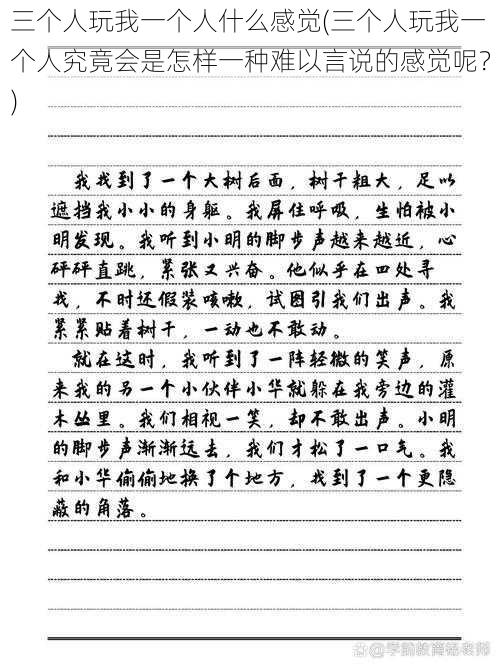 三个人玩我一个人什么感觉(三个人玩我一
个人究竟会是怎样一种难以言说的感觉呢?
)
我找到了一个大树后面，树干粗大，足以
遮挡我小小的身躯。我屏住呼吸，生怕被小
明发现。我听到小明的脚步声越来越近，心
砰砰直跳，紧张又兴奋。他似乎在四处寻
找，不时还假装咳嗽，试图引我们出声。我
紧紧贴着树干，一动也不敢动。
就在这时，我听到了一阵轻微的笑声，原
来我的另一个小伙伴小华就躲在我旁边的灌
木丛里。我们相视一笑，却不敢出声。小明
的脚步声渐渐远去，我们才松了一口气。我
和小华偷偷地换了个地方，找到了一个更隐
蔽的角落。
@学前教育杨老师